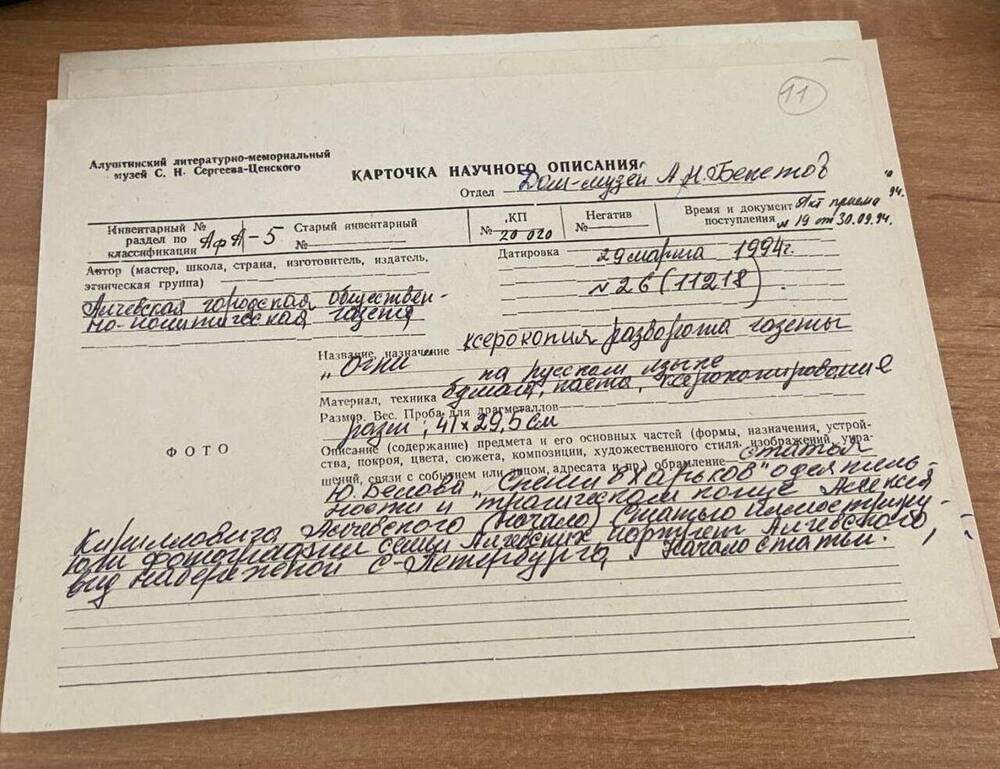 11
Алуштинский литературно-мемориальный
музей С. Н. Сергеева-Ценского
КАРТОЧКА НАУЧНОГО ОПИСАНИЯ
Отдел Дом-музей А.Н.Бекетов
Инвентарный №
раздел по
классификации АфА-5
Старый инвентарный
№
КП
№ 20 020
Негатив
№
Время и документ Акт приема
поступления № 19 от 30.09.94.
94.
Автор (мастер, школа, страна, изготовитель, издатель,
этническая группа)
Алчевская городская обществен-
но-политическая газета
Датировка 29 марта 1994г.
№ 26 (11218).
Название, назначение ксерокопия разворота газеты
„Огни" на русском языке
Материал, техника бумага, паста, ксерокопирование
Размер. Вес. Проба для драгметаллов
разм; 41 х 29,5 см
ФОТО
Описание (содержание) предмета и его основных частей (формы, назначения, устрой-
ства, покроя, цвета, сюжета, композиции, художественного стиля, изображений, укра-
шений, связи с событием или лицом, адресата и пр.) обрамление статья
Ю.Белова „Спеши в Харьков" о деятель-
ности и трагическом конце Алексея
Кирилловича Алчевского (начало) Статью иллюстриру-
ют фотографии семьи Алчевских портрет Алчевского,
вид набережной С-Петербурга. Начало статьи.